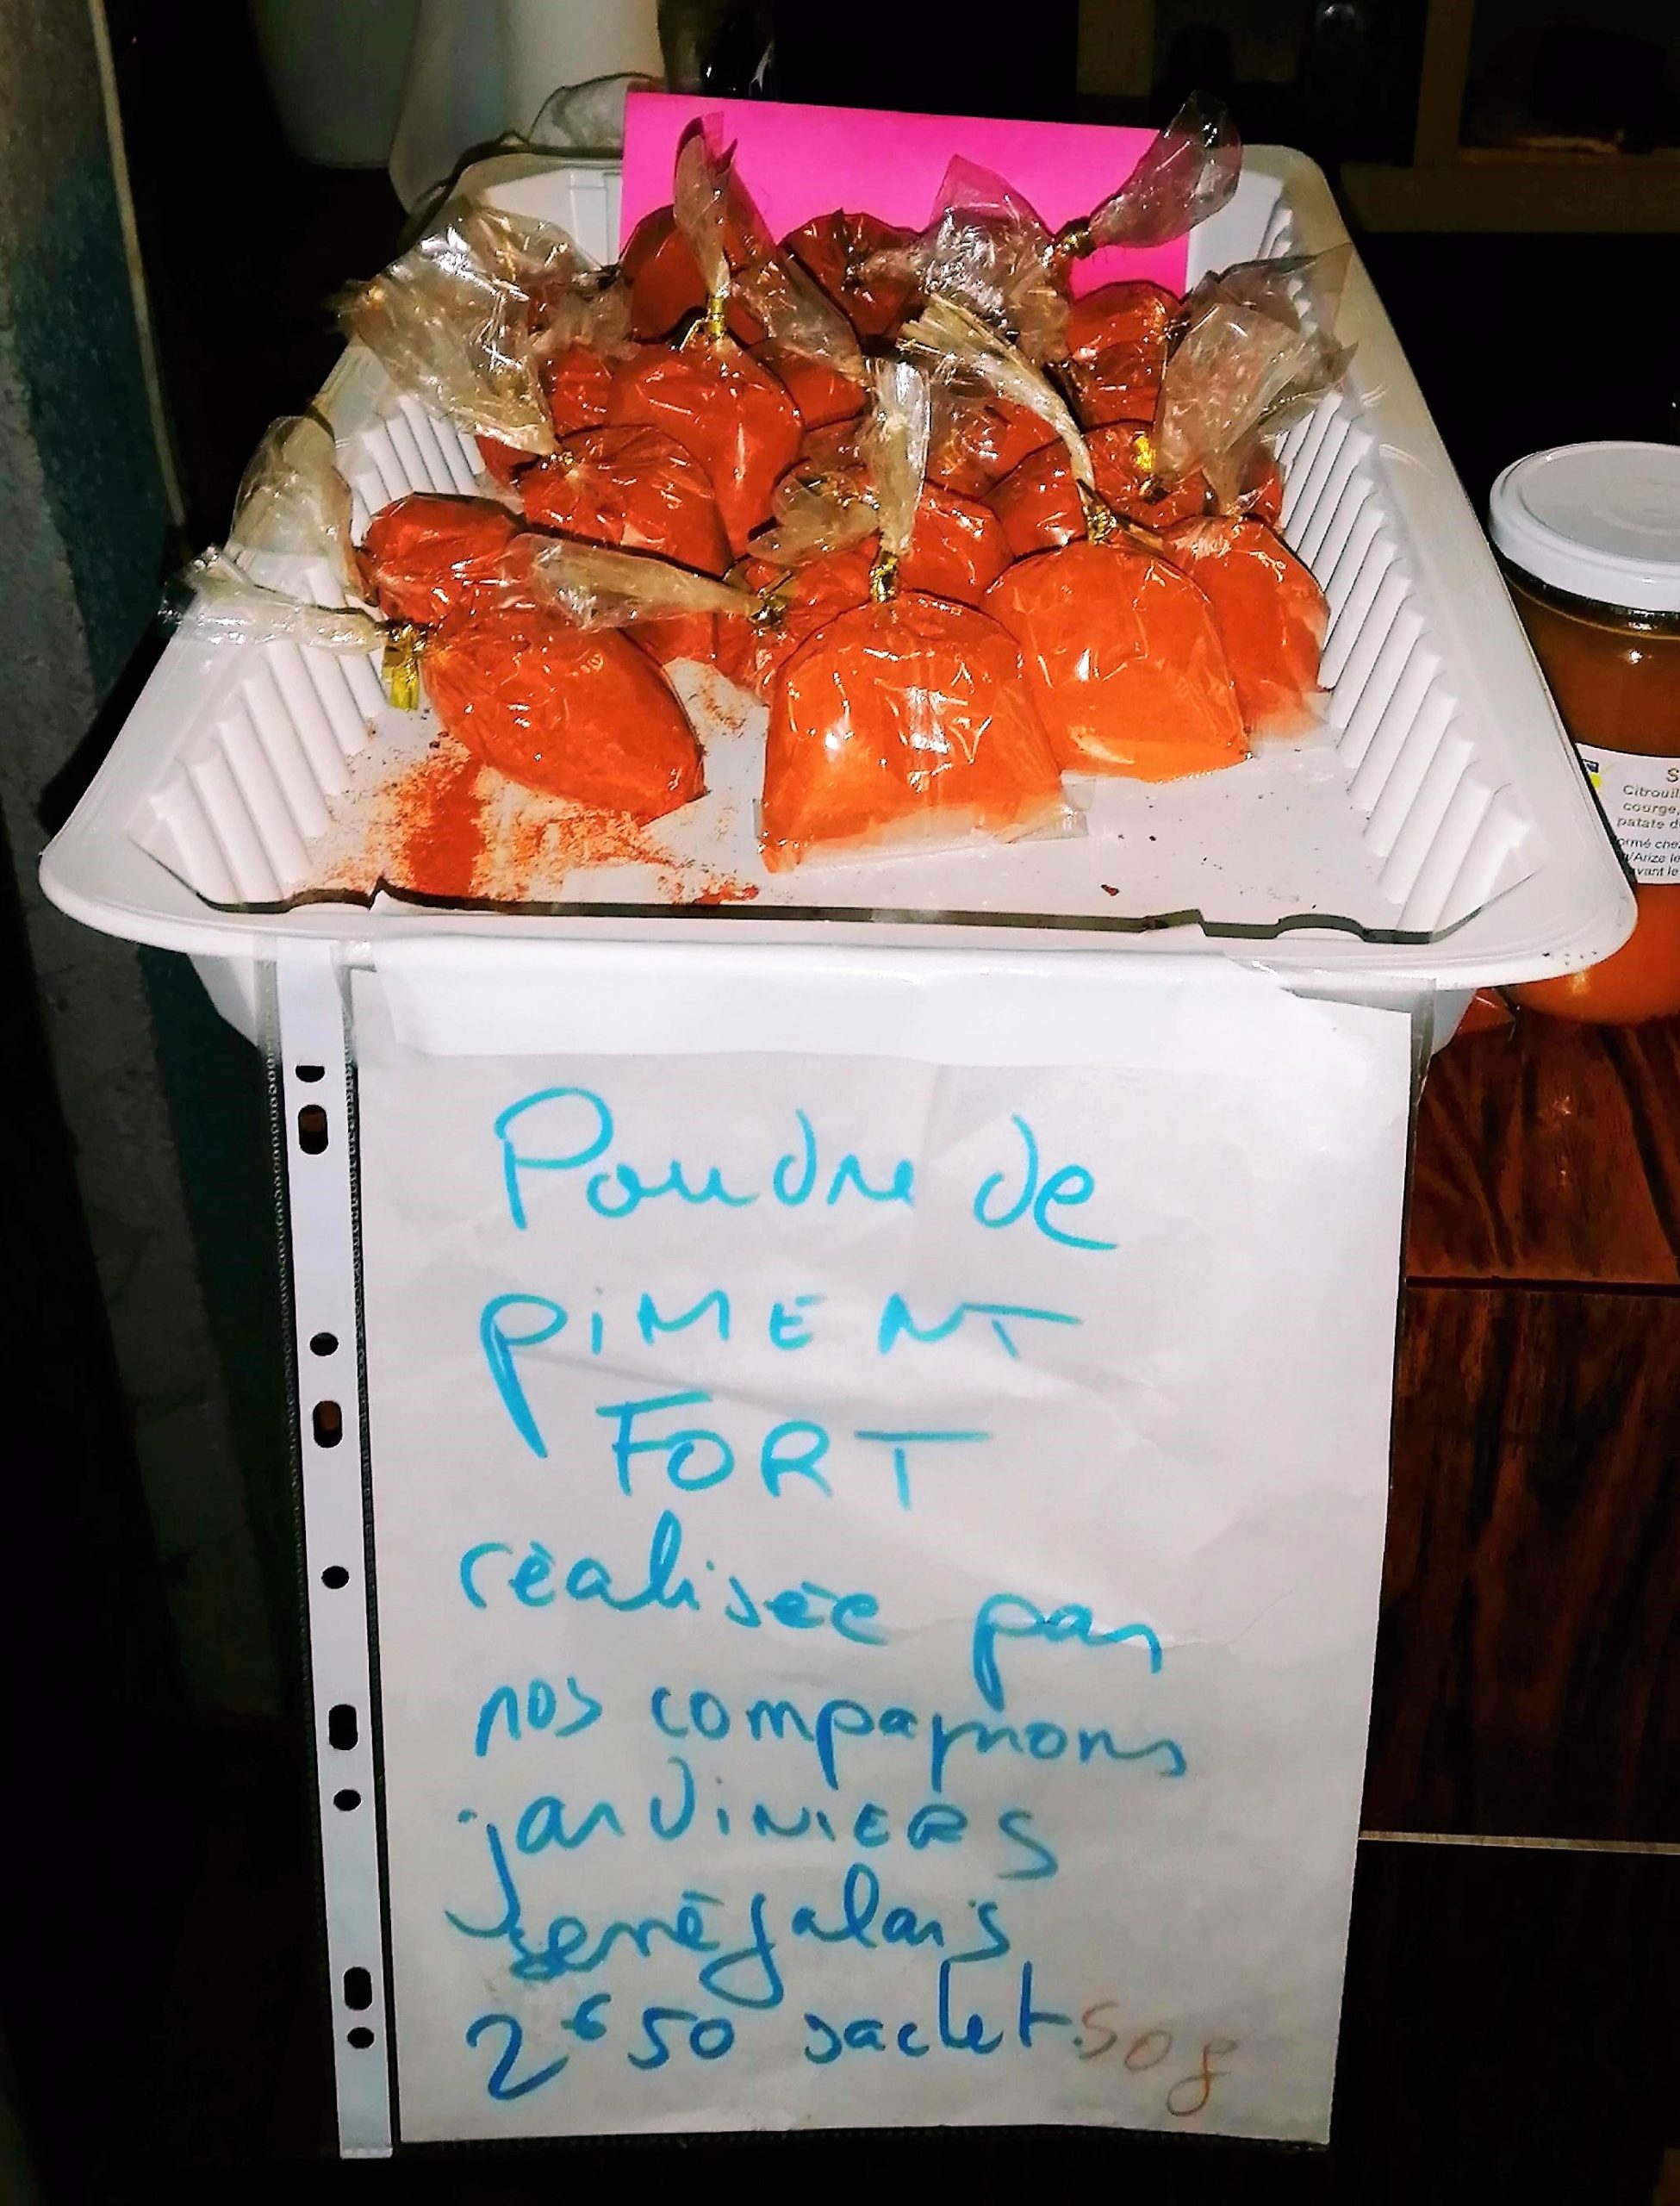 Poudre de
PiMENT
FORT
réalisée par
nos compagnons
jardiNiERS
Sénégalais
2€50 sachet.50g
S
Citrouil
courge,
patate d
ormé che
u/Arize le
avant le